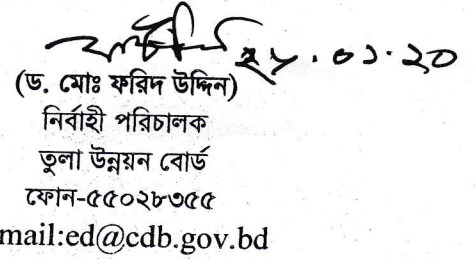 ২৮.০১.২০
(ড. মোঃ ফরিদ উদ্দিন)
নির্বাহী পরিচালক
তুলা উন্নয়ন বোর্ড
ফোন-৫৫০২৮৩৫৫
mail:ed@cdb.gov.bd